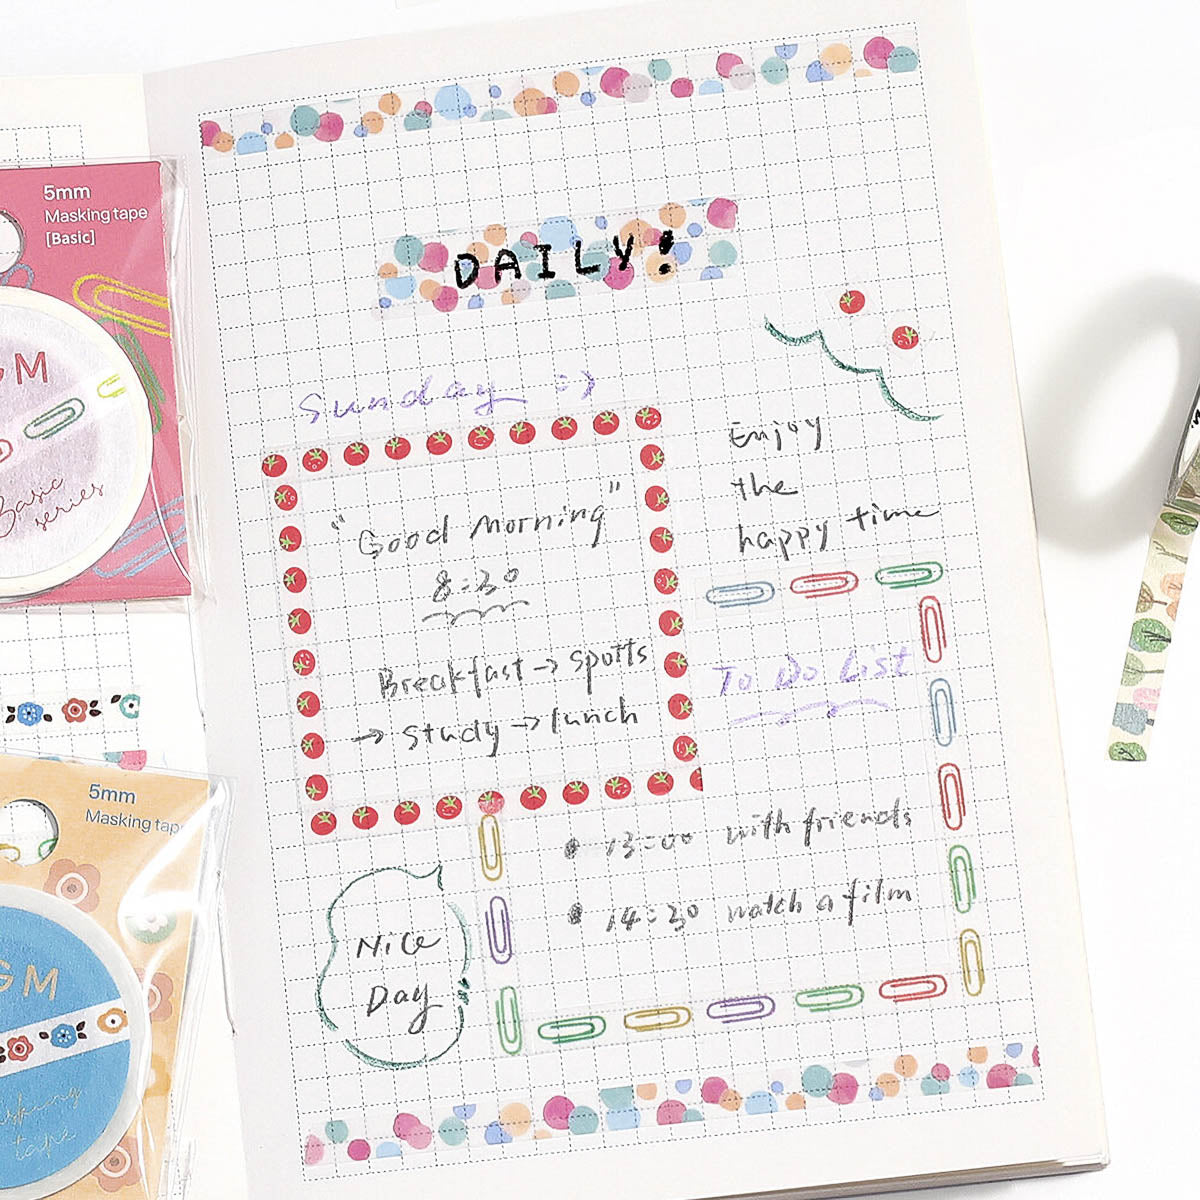 5mm
Masking tape
[Basic]
GM
Basic
series
5mm
Masking tape
GM
masking
tape
DAILY!
Sunday :)
"Good morning"
8:30
Breakfast → spotts
→ study → lunch
Enjoy
the
happy time
To Do List
• 13:00 with friends
• 14:30 watch a film
Nice
Day